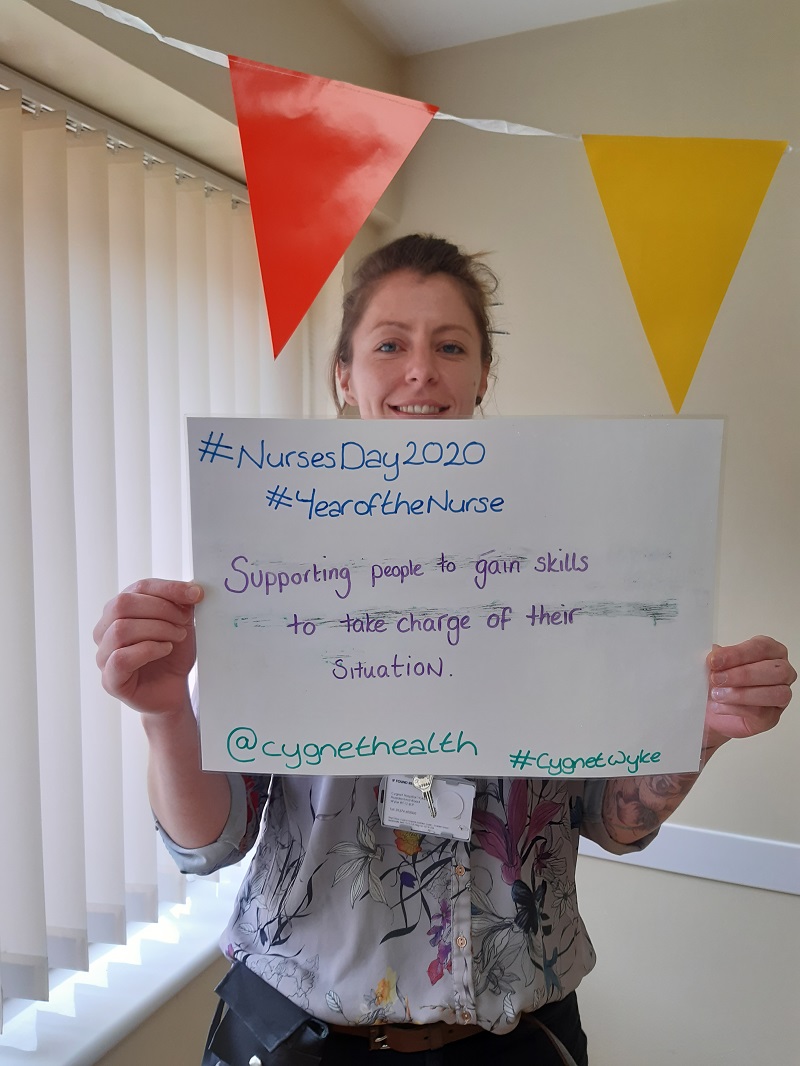 #NursesDay2020
#YearoftheNurse
Supporting people to gain skills
to take charge of their
Situation.
@cygnethealth
#CygnetWyke